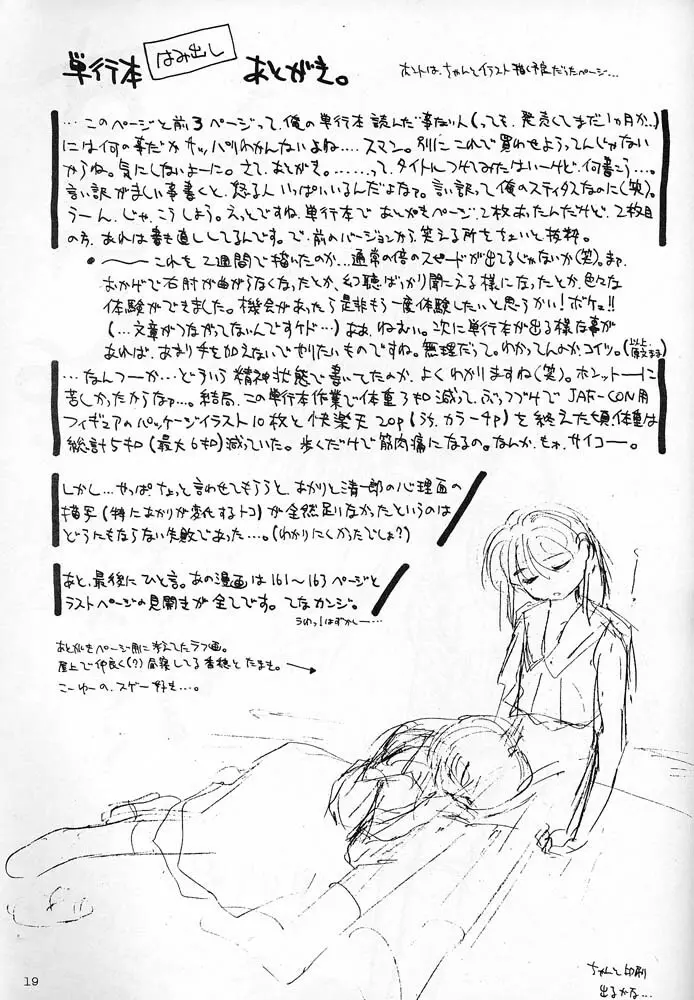 単行本 はみ出し あとがき。
ホントは、ちゃんとイラスト描く予定だったページ…
…このページと前3ページって、俺の単行本読んだ事ない人(っても、発売してまだ1ヵ月か、)
には何の事だかサッパリわかんないよね…。スマン。別にこれで買わせようってんじゃない
からね。気にしないよーに。さて、あとがき。……って、タイトルつけてみたはいーけど、何書こう…。
言い訳がましい事書くと、怒る人いっぱいいるんだよなァ。言い訳って俺のスティタスなのに(笑)。
うーん、じゃ、こうしよう。えっとですね、単行本であとがきページ、2枚あったんだけど、2枚目
の方、あれは書き直ししてるんです。で、前のバージョンから、笑える所をちょいと抜粋。
●〜これを2週間で描いたのか…通常の倍のスピードが出てるじゃないか(笑)。まァ、
おかげで右肘が曲がらなくなったとか、幻聴ばっかり聞こえる様になったとか、色々な
体験ができました。機会があったら是非もう一度体験したいと思うかい!ボケェ!!
(…文章がつながってないんですケド…)ああ、ねむい。次に単行本が出る様な事が
あれば、あまり手を加えないでやりたいものですね。無理だって。わかってんのかコイツ。(原文まま)
…なんつーか…どういう精神状態で書いてたのか、よくわかりますね(笑)。ホンットーに
苦しかったからなァ…。結局、この単行本作業で体重3キロ減って、ぶっつづけでJAF-CON用
フィギュアのパッケージイラスト10枚と快楽天20p(うち、カラー4p)を終えた頃、体重は
総計5キロ(最大6キロ)減っていた。歩くだけで筋肉痛になるの。なんか、もォ、サイコー。
しかし…やっぱ、ちょっと言わせてもらうと、あかりと清一郎の心理面の
描写(特にあかりが変化するトコ)が全然足りなかったというのは
どうにもならない失敗であった…。(わかりにくかったでしょ?)
あと、最後にひと言。あの漫画は161〜163ページと
ラストページの見開きが全てです。てなカンジ。
うわっ!はずかしー…
あとがきページ用に考えてたラフ画。
屋上で仲良く(?)昼寝してる香穂とたまき。
こーゆーの、スゲー好き…。
ちゃんと印刷
出るかな…
19